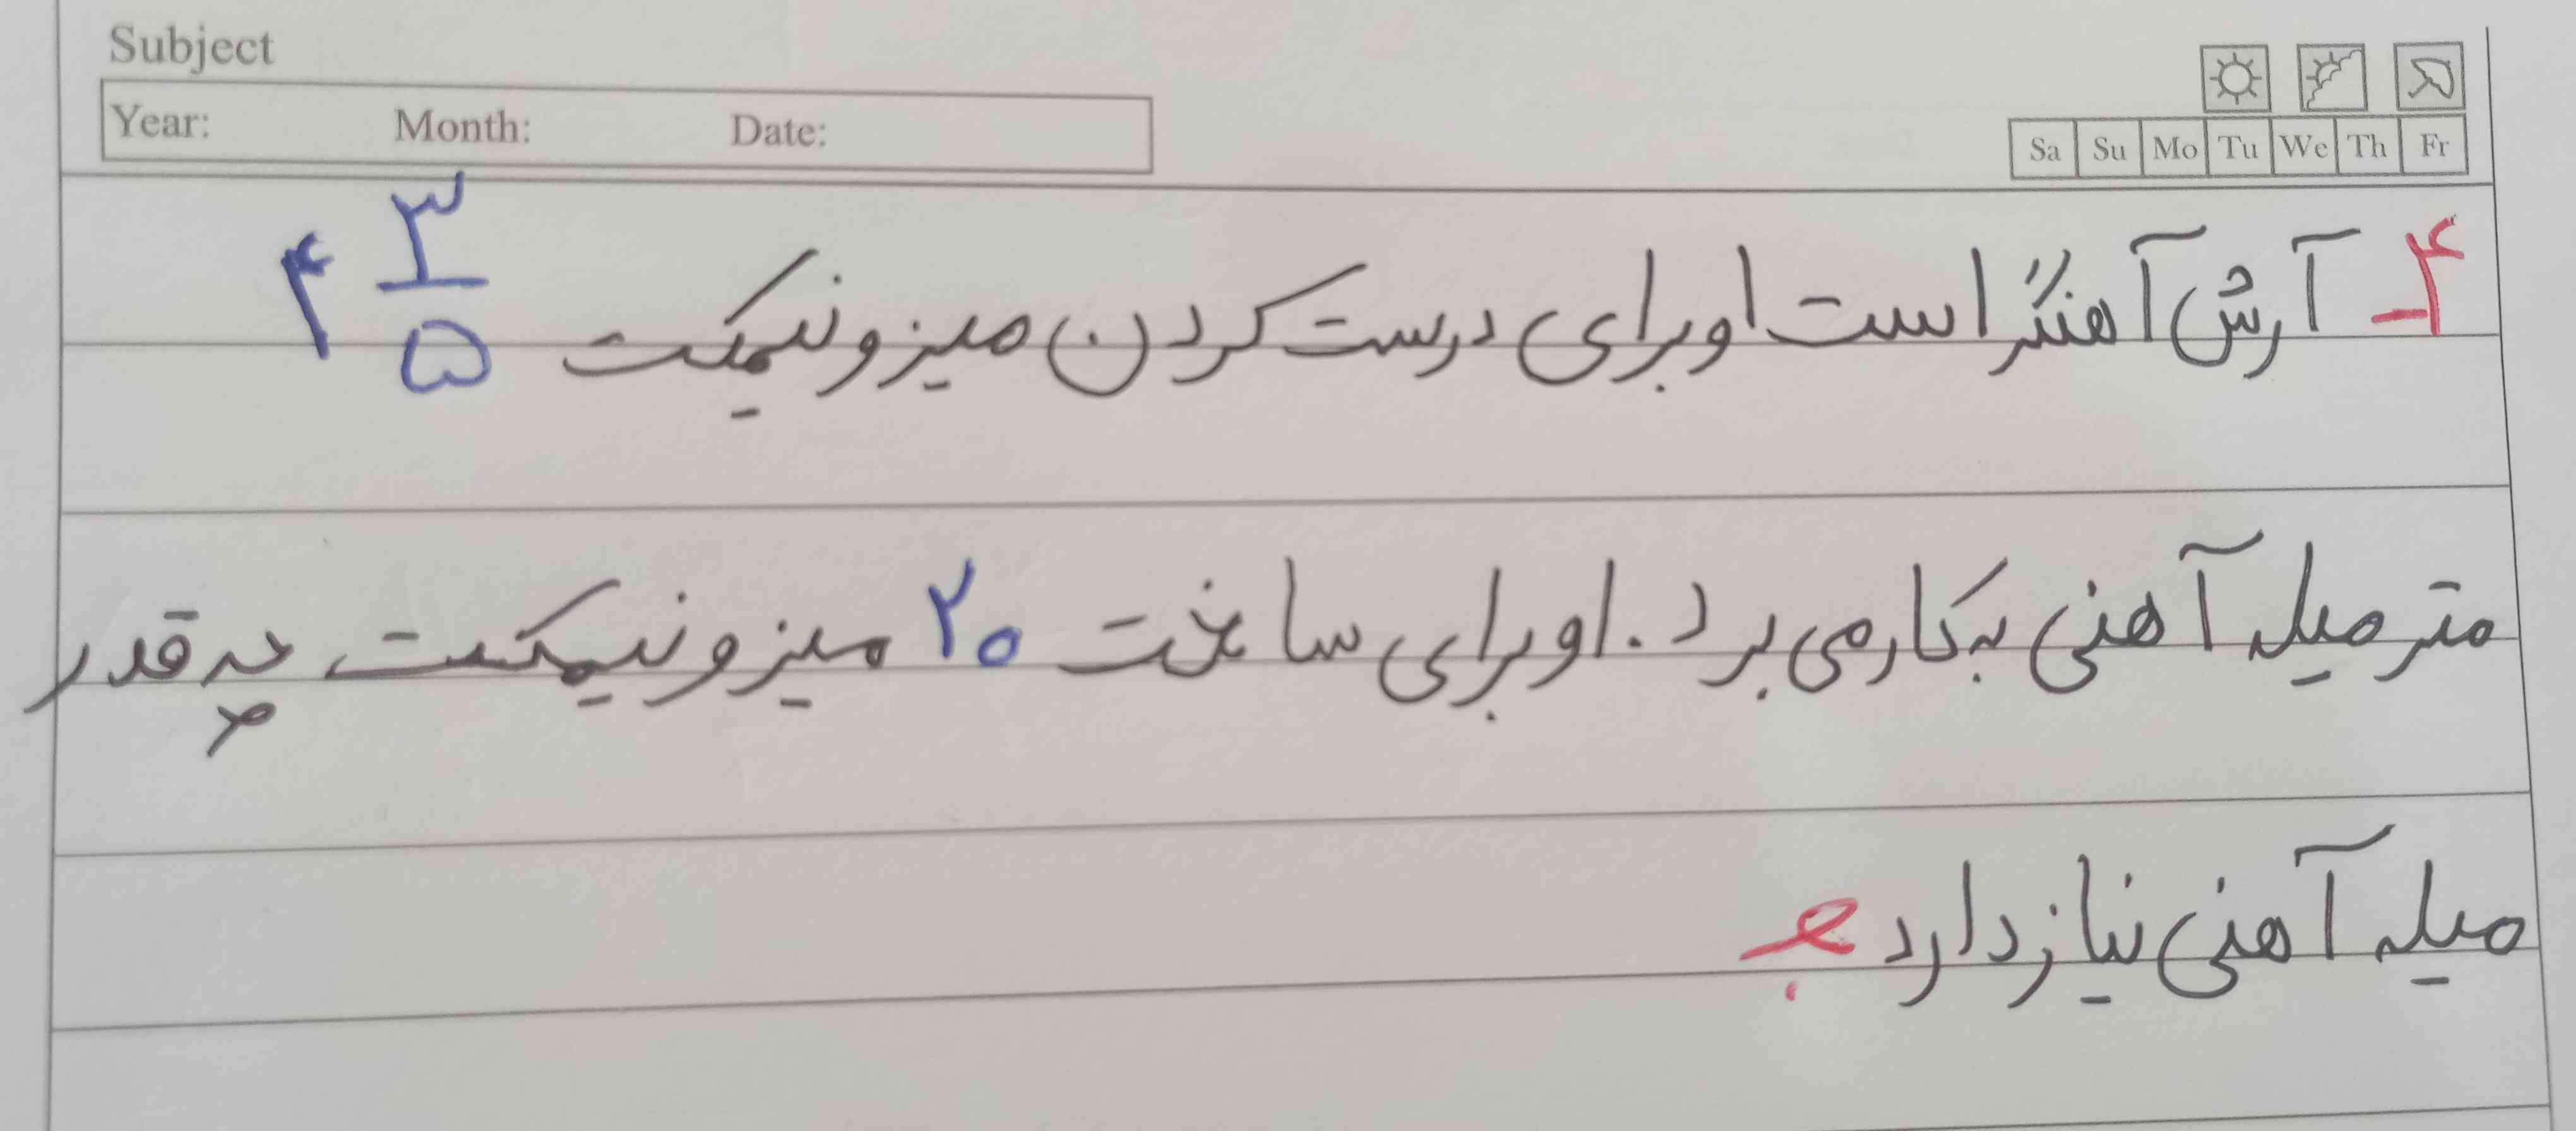 Subject
Year: Month: Date:
Sa Su Mo Tu We Th Fr
۴- آرش آهنگر است او برای درست کردن میز و نیمکت ۴ ۳/۵
متر میله آهنی به کار می برد. او برای ساخت ۲۰ میز و نیمکت چه قدر
میله آهنی نیاز دارد؟